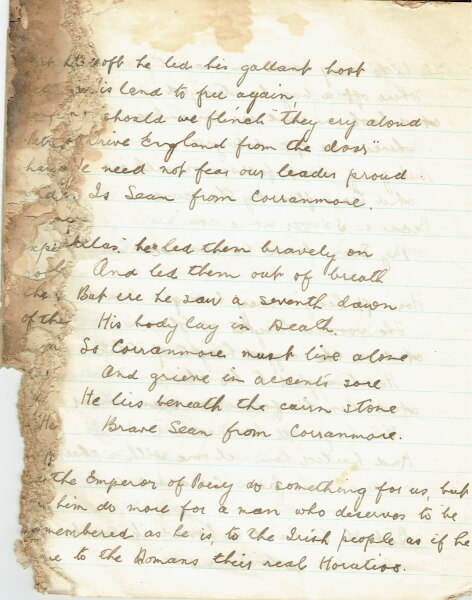 oft he led his gallant host
island to free again,
should we flinch they cry aloud
drive England from the door"
need not fear our leader proud
Is Sean from Corranmore.
he led them bravely on
And led them out of breath
But ere he saw a seventh dawn
of the His body lay in Death.
So Corranmore must live alone
And grieve in accents sore
He lies beneath the cairn stone
He Brave Sean from Corranmore.
the Emperor of Poesy do something for us, but
him do more for a man who deserves to be
membered as he is, to the Irish people as if he
to the Romans their real Horatios.